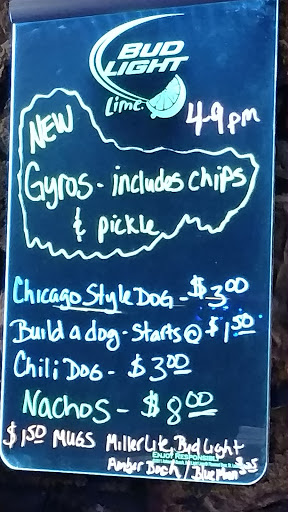 BUD
LIGHT
Lime
4-9 pm
NEW
Gyros - includes chips
& pickle
Chicago Style DOG - $3.00
Build a dog - Starts @ $1.50
Chili DOG - $3.00
Nachos - $8.00
$1.50 MUGS Miller Lite, Bud Light
ENJOY RESPONSIBLY
Amber Bock / Blue Moon